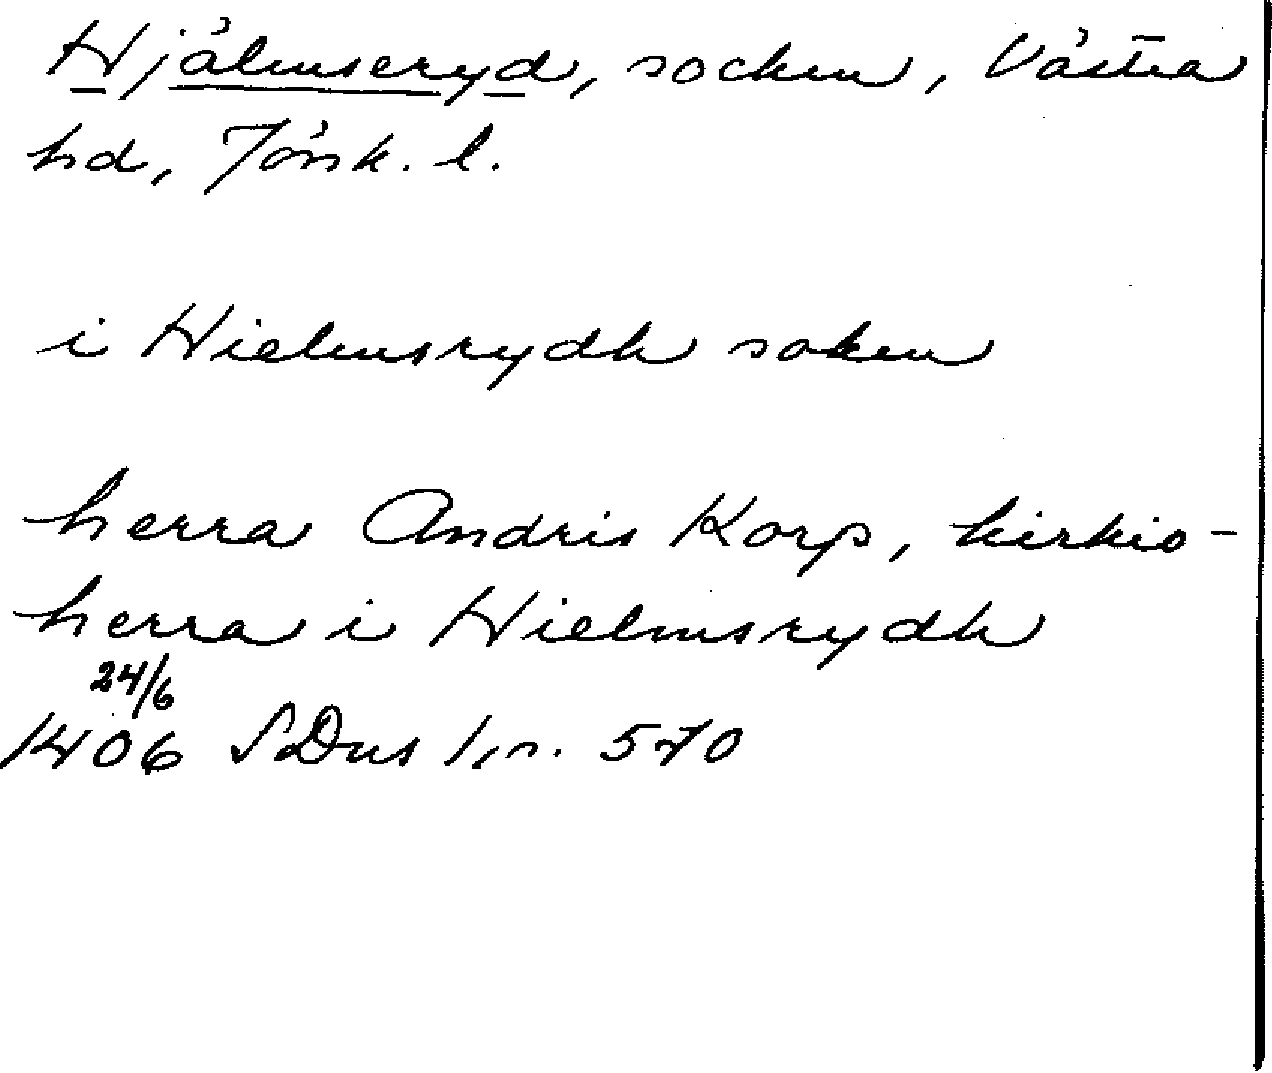 Hjälmseryd, socken, Västra
hd, Jönk. l.
i Hielmsrydh soken
herra Andris Korp, kirkio-
herra i Hielmsrydh
24/6
1406 SDns 1, n. 570